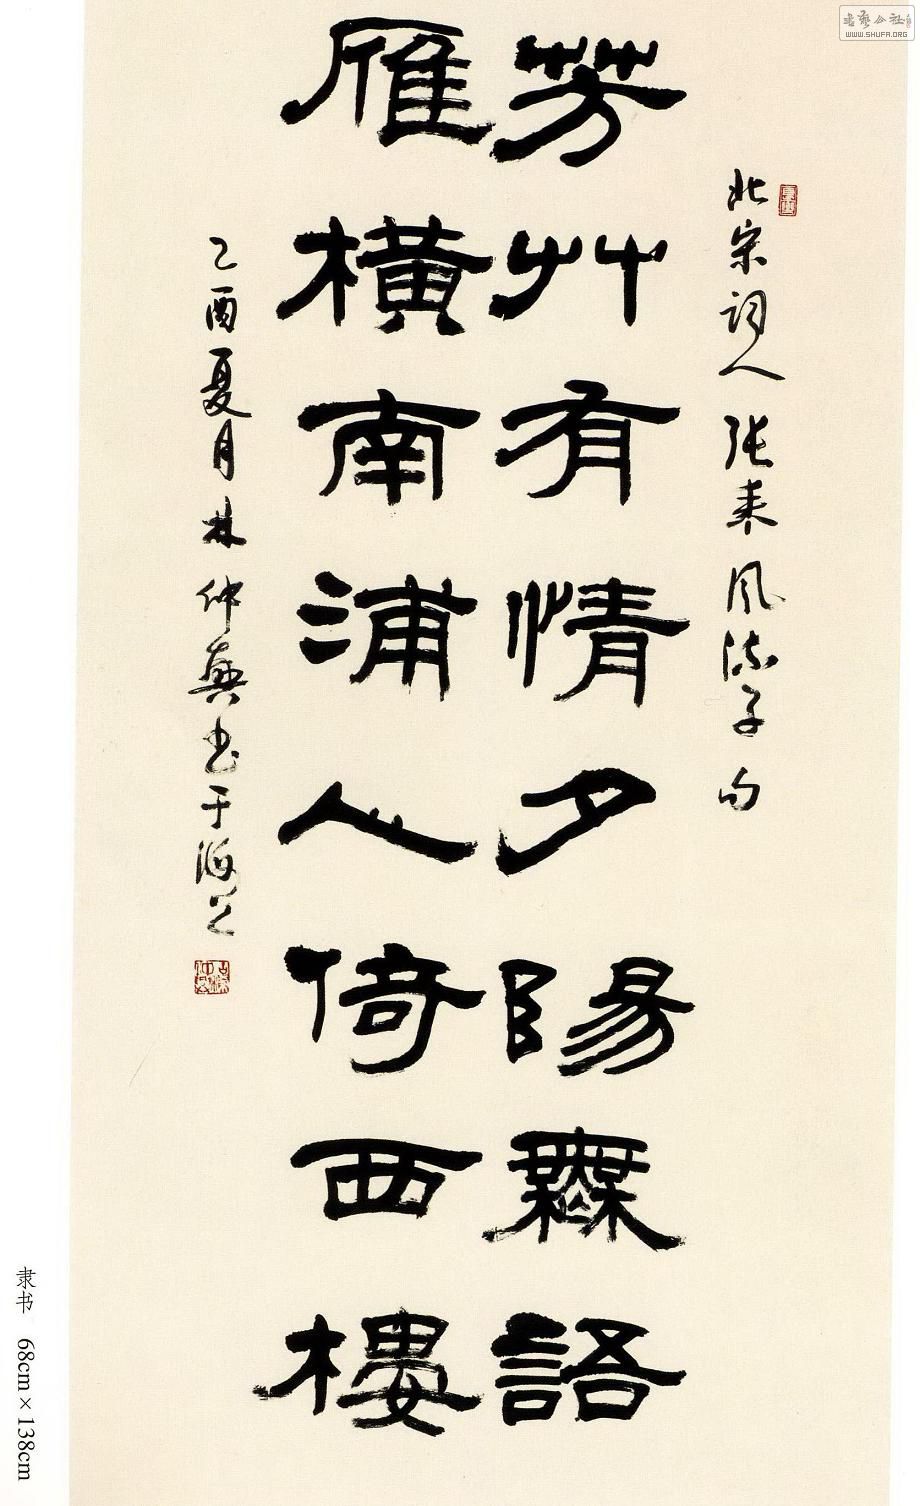 書藝公社
WWW.SHUFA.ORG
北宋词人张耒风流子句
芳艸有情夕陽無語
雁橫南浦人倚西樓
乙酉夏月林仲興书于海上
隶书 68cm×138cm